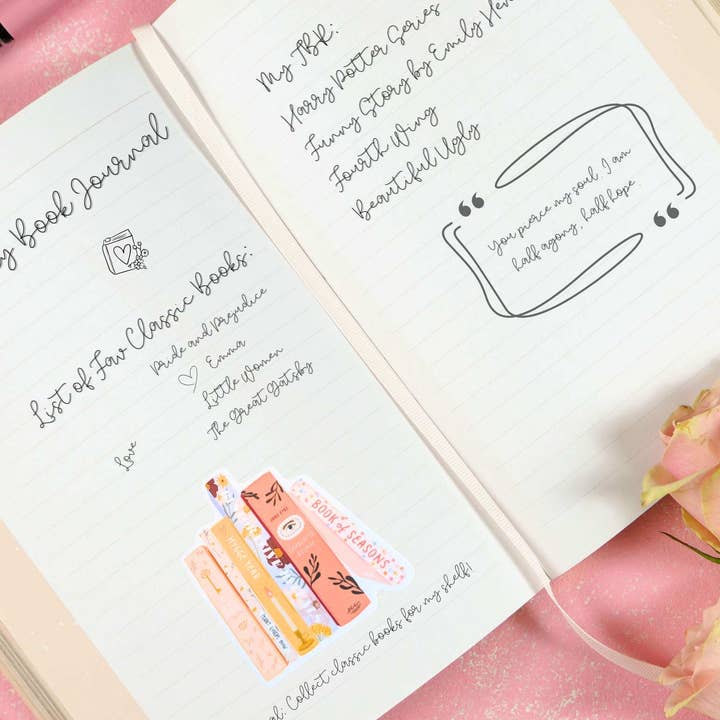 y Book Journal
List of Fav Classic Books:
Pride and Prejudice
Emma
Little Women
The Great Gatsby
Love
BOOK of SEASONS
al: Collect classic books for my shelf!
My TBR:
Harry Potter Series
Funny Story by Emily Hen
Fourth Wing
Beautiful Ugly
“
You pierce my soul. I am
half agony, half hope.
”